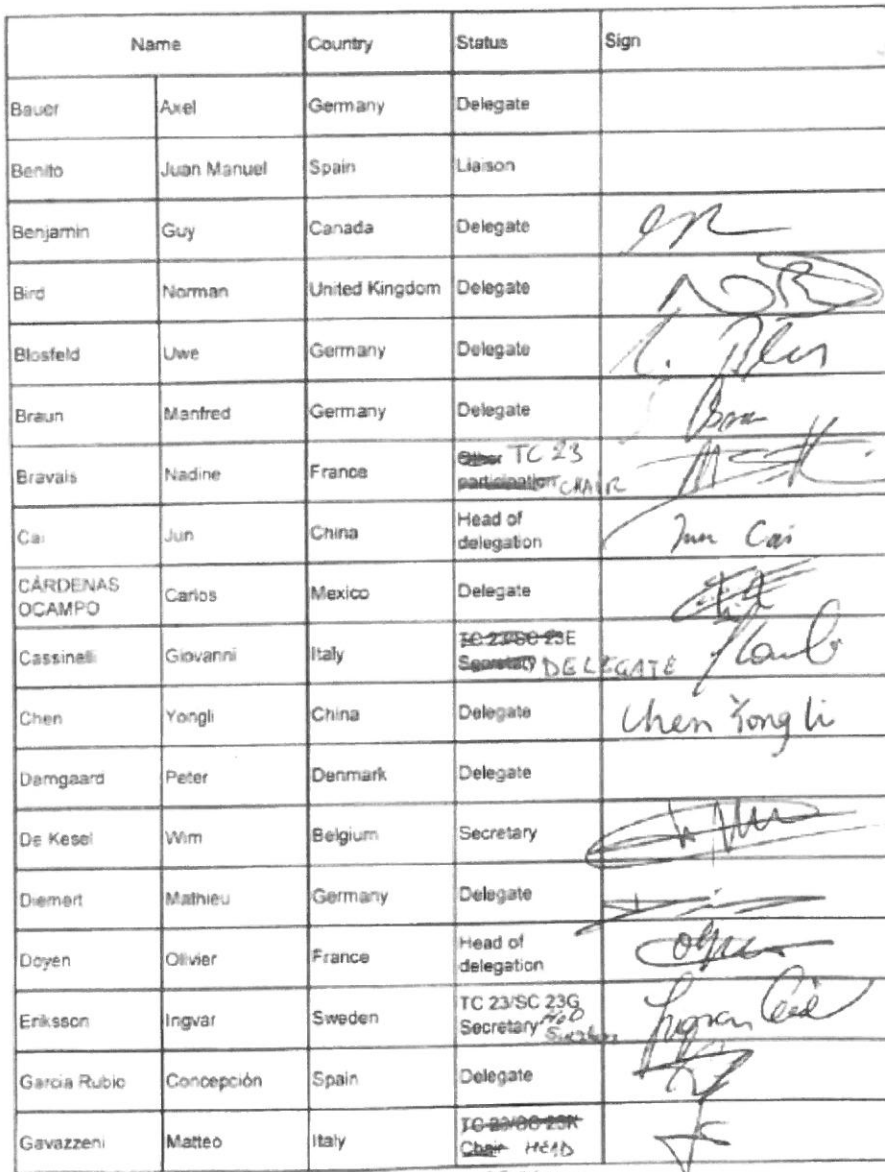 Name Country Status Sign
Bauer Axel Germany Delegate
Benito Juan Manuel Spain Liaison
Benjamin Guy Canada Delegate
Bird Norman United Kingdom Delegate
Blosfeld Uwe Germany Delegate
Braun Manfred Germany Delegate
Bravais Nadine France Other TC 23
participation CHAIR
Cai Jun China Head of
delegation Jun Cai
CÁRDENAS
OCAMPO Carlos Mexico Delegate
Cassinelli Giovanni Italy TC 23/SC 23E
Secretary DELEGATE
Chen Yongli China Delegate Chen Yong li
Damgaard Peter Denmark Delegate
De Kesel Wim Belgium Secretary
Diemert Mathieu Germany Delegate
Doyen Olivier France Head of
delegation
Eriksson Ingvar Sweden TC 23/SC 23G
Secretary HoD
Sweden Ingvar
Garcia Rubio Concepción Spain Delegate
Gavazzeni Matteo Italy TC 23/SC 23K
Chair HEAD